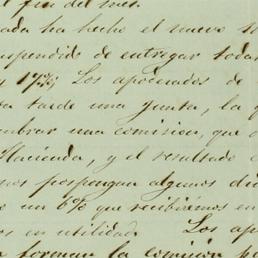 al fin del mes.
ada ha hecho el nuevo
suspendido de entregar toda
Los apoderados de
ta tarde una junta, la q
mbrar una comision, que
Hacienda, y el resultado
nos pospongan algunos di
o un 6% que recibiremos en
es en utilidad. Los apo
n forman la comision po